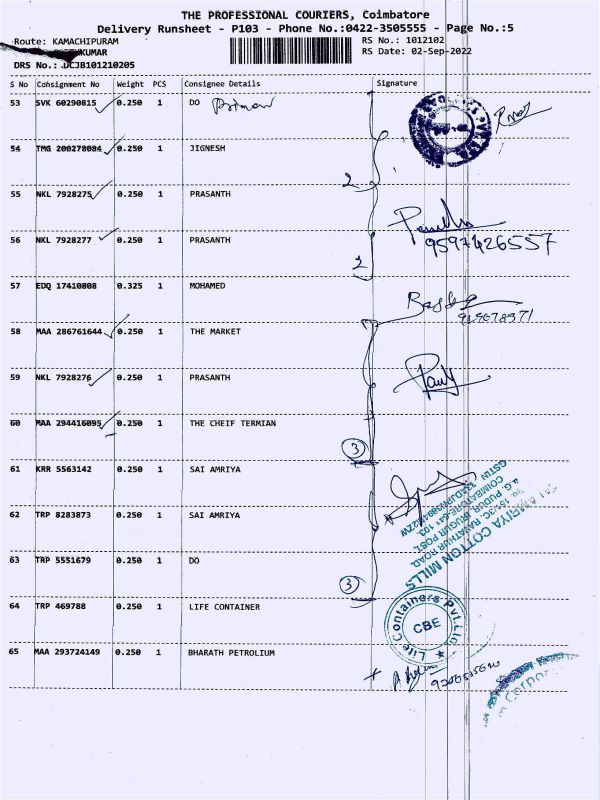 THE PROFESSIONAL COURIERS, Coimbatore
Delivery Runsheet - P103 - Phone No.:0422-3505555 - Page No.:5
Route: KAMACHIPURAM
RS No.: 1012102
KUMAR
RS Date: 02-Sep-2022
DRS No.: DCJB101210205
S No Consignment No Weight PCS Consignee Details Signature
53 SVK 60290815 0.250 1 DO
54 TMG 200278084 0.250 1 JIGNESH
2
55 NKL 7928275 0.250 1 PRASANTH
56 NKL 7928277 0.250 1 PRASANTH
9597426557
2
57 EDQ 17410808 0.325 1 MOHAMED
58 MAA 286761644 0.250 1 THE MARKET
59 NKL 7928276 0.250 1 PRASANTH
60 MAA 294416095 0.250 1 THE CHEIF TERMIAN
3
61 KRR 5563142 0.250 1 SAI AMRIYA
SAI AMRIYA COTTON MILLS
62 TRP 8283873 0.250 1 SAI AMRIYA
63 TRP 5551679 0.250 1 DO
3
64 TRP 469788 0.250 1 LIFE CONTAINER
Life Containers Pvt.Ltd
CBE
65 MAA 293724149 0.250 1 BHARATH PETROLIUM